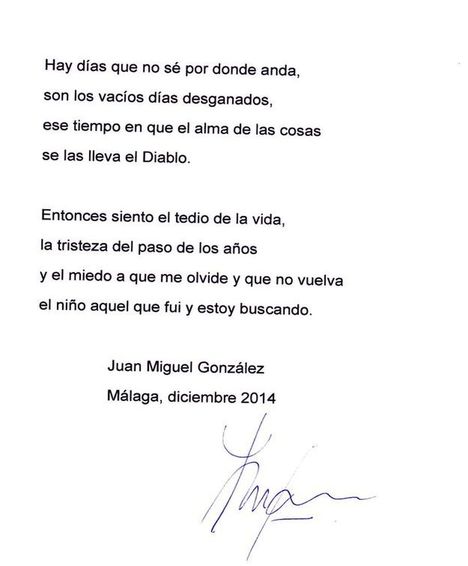 Hay días que no sé por donde anda,
son los vacíos días desganados,
ese tiempo en que el alma de las cosas
se las lleva el Diablo.
Entonces siento el tedio de la vida,
la tristeza del paso de los años
y el miedo a que me olvide y que no vuelva
el niño aquel que fui y estoy buscando.
Juan Miguel González
Málaga, diciembre 2014